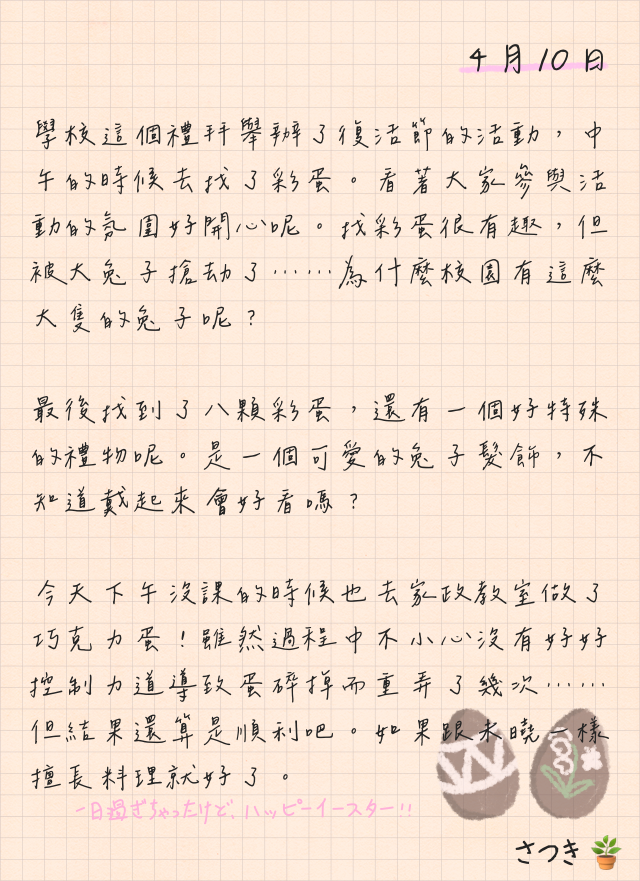 4月10日
學校這個禮拜舉辦了復活節的活動，中
午的時候去找了彩蛋。看著大家參與活
動的氛圍好開心呢。找彩蛋很有趣，但
被大兔子搶劫了……為什麼校園有這麼
大隻的兔子呢？
最後找到了八顆彩蛋，還有一個好特殊
的禮物呢。是一個可愛的兔子髮飾，不
知道戴起來會好看嗎？
今天下午沒課的時候也去家政教室做了
巧克力蛋！雖然過程中不小心沒有好好
控制力道導致蛋碎掉而重弄了幾次……
但結果還算是順利吧。如果跟未曉一樣
擅長料理就好了。
一日過ぎちゃったけど、ハッピーイースター!!
さつき